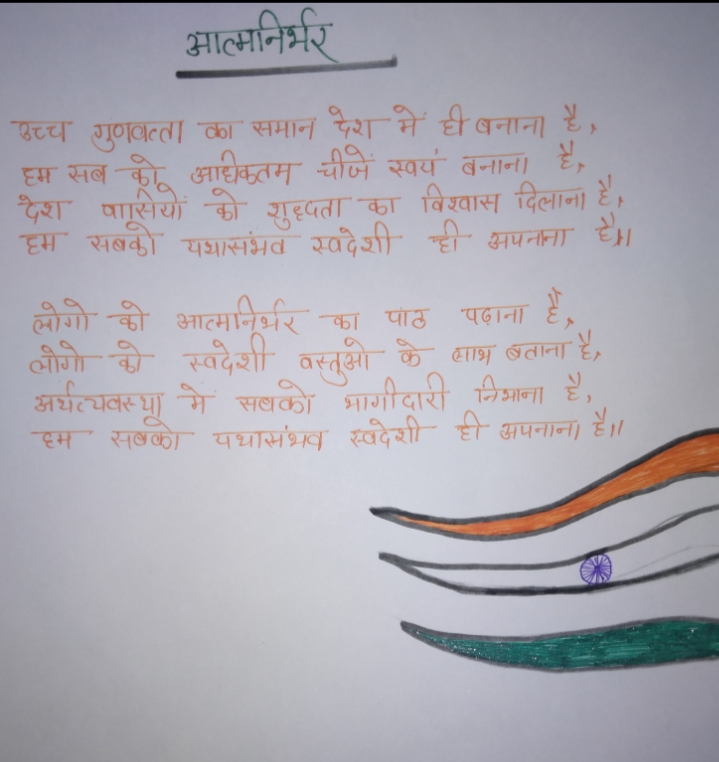 आत्मनिर्भर
उच्च गुणवत्ता का समान देश में ही बनाना है,
हम सब को अधिकतम चीजें स्वयं बनाना है,
देश वासियों को शुद्धता का विश्वास दिलाना है,
हम सबको यथासंभव स्वदेशी ही अपनाना है॥
लोगो को आत्मनिर्भर का पाठ पढ़ाना है,
लोगो को स्वदेशी वस्तुओ के लाभ बताना है,
अर्थव्यवस्था में सबको भागीदारी निभाना है,
हम सबको यथासंभव स्वदेशी ही अपनाना है॥